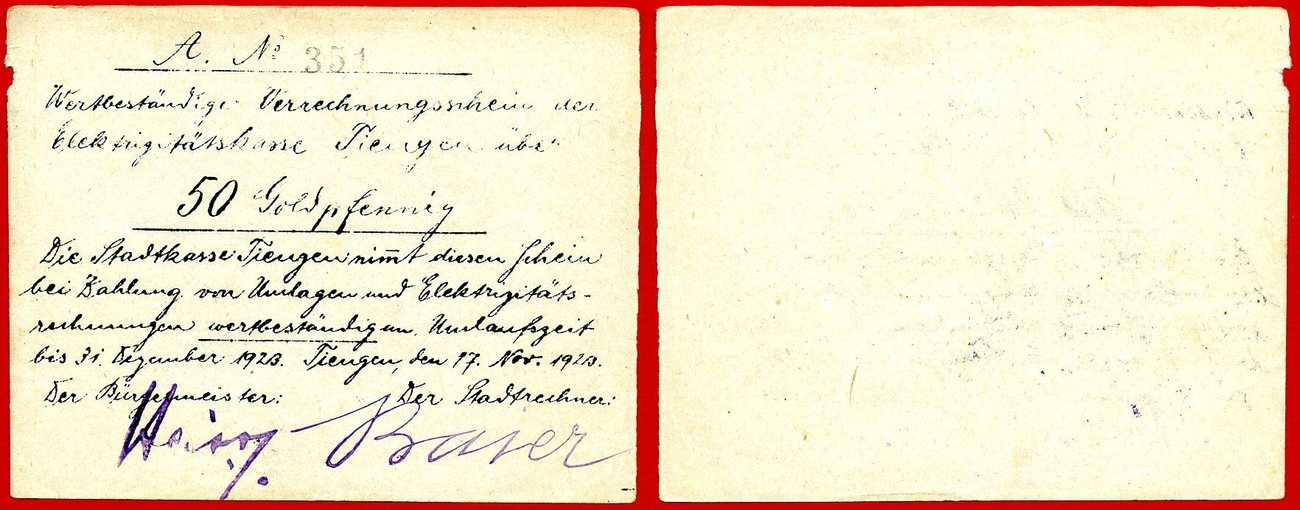 A. Nº 351
Wertbeständiger Verrechnungsschein der
Elektrizitätskasse Tiengen über
50 Goldpfennig
Die Stadtkasse Tiengen nim̅t diesen Schein
bei Zahlung von Umlagen und Elektrizitäts-
rechnungen wertbeständig an. Umlaufszeit
bis 31. Dezember 1923. Tiengen, den 17. Nov. 1923.
Der Bürgermeister: Der Stadtrechner: